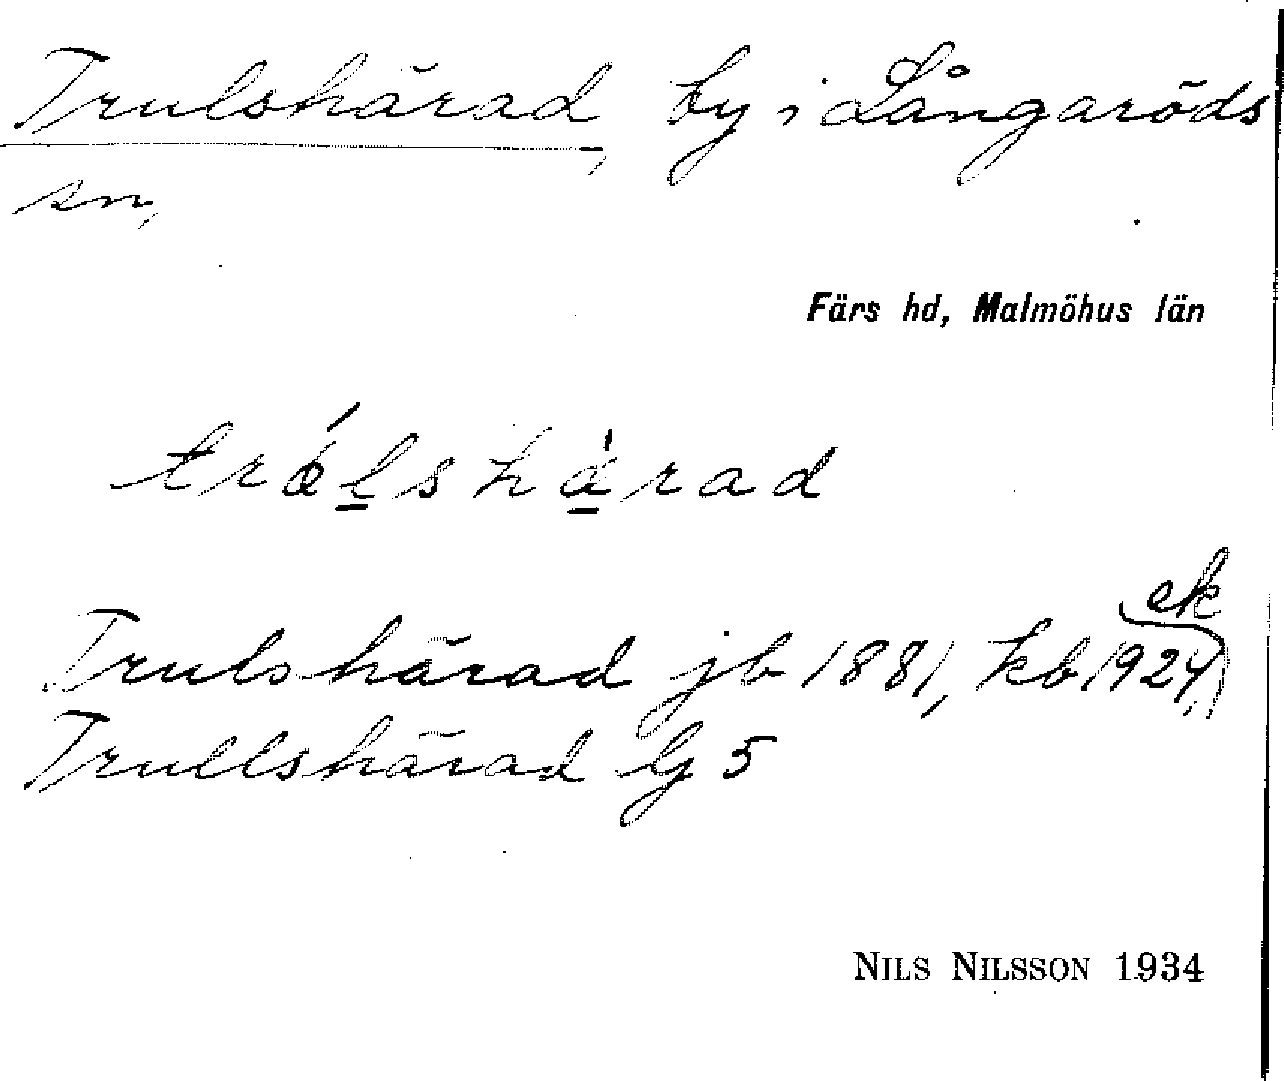 Trulshärad, by i Långaröds
sn,
Färs hd, Malmöhus län
ek
Trulshärad jb 1881, kb 1924,
Trullshärad G 5
NILS NILSSON 1934